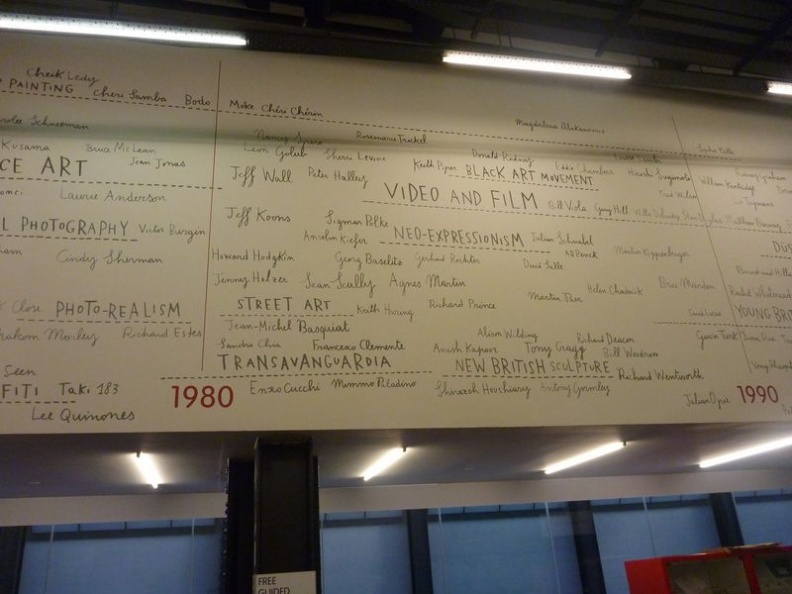 Cheik Ledy
PAINTING Cheri Samba Bodo Moke Chéri Chérin
Magdalena Abakanowicz
Nancy Spero Rosemarie Trockel
Kusama Bruce McLean Leon Golub Sherrie Levine
Donald Rodney
CE ART Joan Jonas Keith Piper BLACK ART MOVEMENT Eddie Chambers William Kentridge
Jeff Wall Peter Halley
Laurie Anderson VIDEO AND FILM Bill Viola Gary Hill
Jeff Koons Sigmar Polke
L PHOTOGRAPHY Victor Burgin Anselm Kiefer NEO-EXPRESSIONISM Julian Schnabel
Cindy Sherman Howard Hodgkin Georg Baselitz Gerhard Richter AR Penck Martin Kippenberger
David Salle
Jenny Holzer Sean Scully Agnes Martin Helen Chadwick Brice Marden
Close PHOTO-REALISM STREET ART Keith Haring Richard Prince Martin Parr
Morley Richard Estes Jean-Michel Basquiat YOUNG BRIT
Sandro Chia Francesco Clemente Alison Wilding Richard Deacon Gavin Turk
Anish Kapoor Tony Cragg Bill Woodrow
Seen TRANSAVANGUARDIA NEW BRITISH SCULPTURE Richard Wentworth
FITI Taki 183 1980 Enzo Cucchi Mimmo Paladino Shirazeh Houshiary Antony Gormley Julian Opie 1990
Lee Quinones
FREE
GUIDED